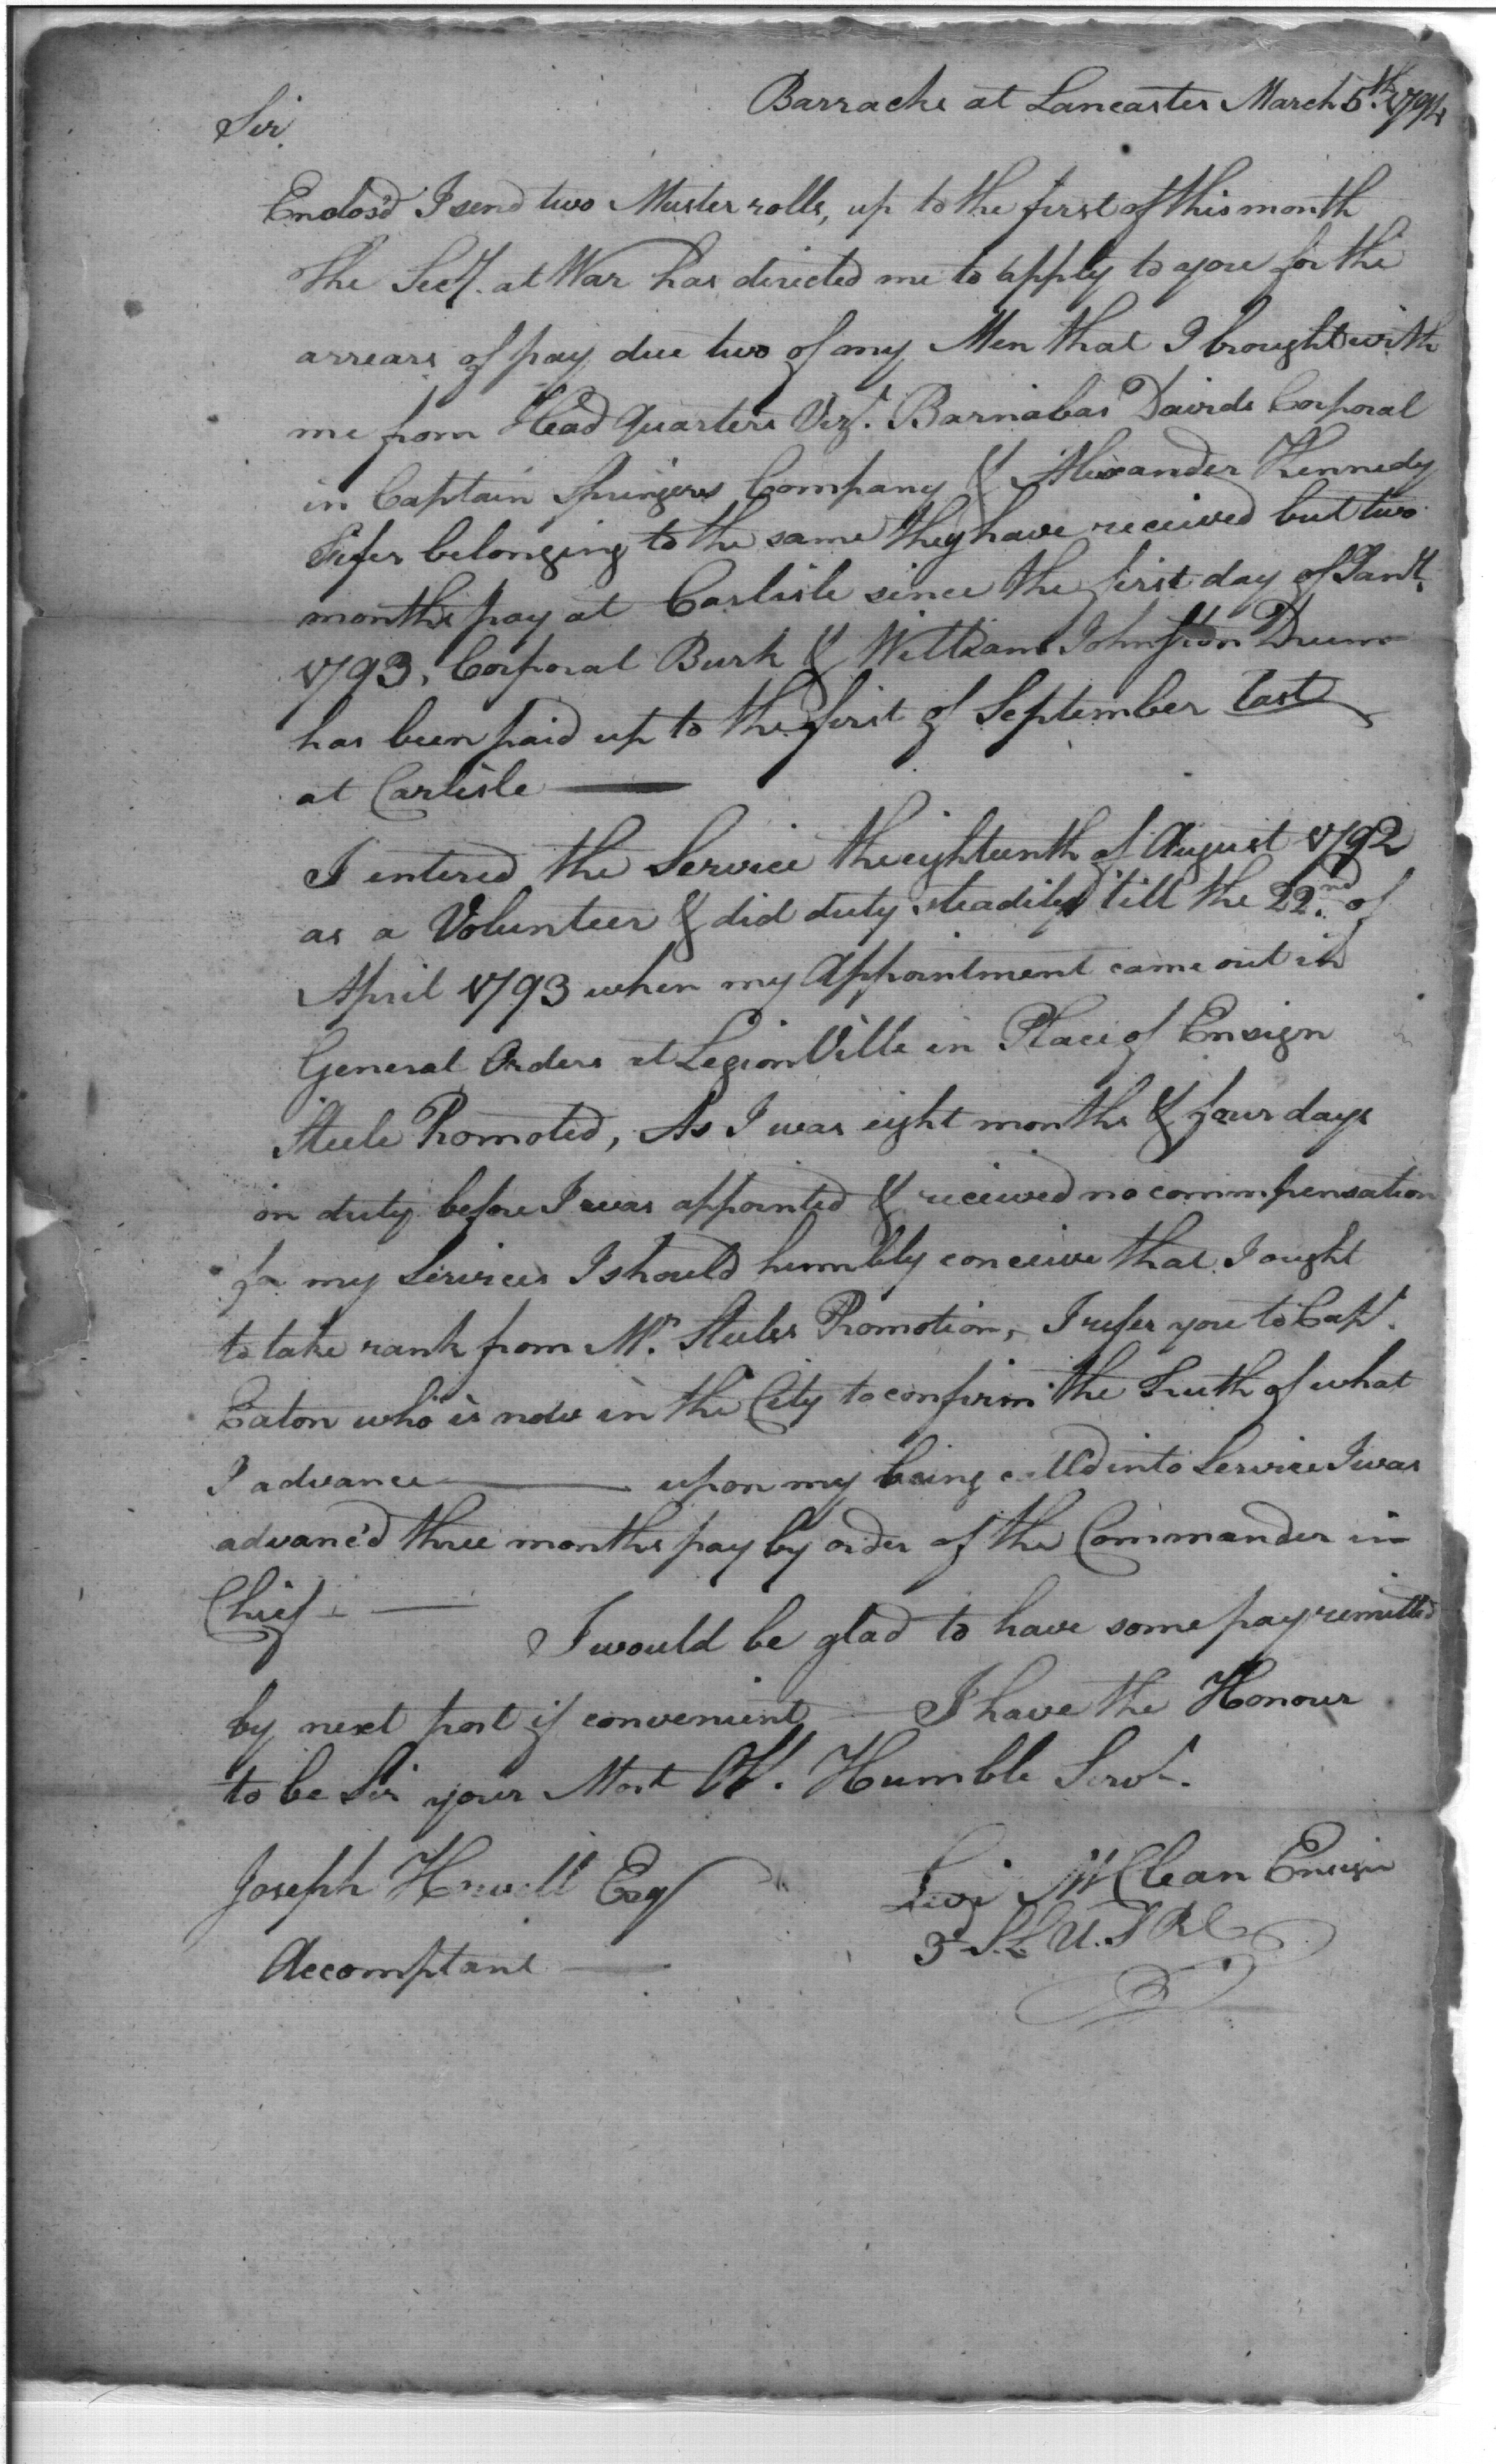 Barracks at Lancaster March 5th. 1794
Sir.
Enclos'd I send two Muster rolls, up to the first of this month
The Secy. at War has directed me to apply to you for the
arrears of pay due two of my Men that I brought with
me from Head Quarters Vizt. Barnabas Davids Corporal
in Captain Springers Company & Alexander Kennedy
Fifer belonging to the same they have received but two
months pay at Carlisle since the first day of Jany.
1793, Corporal Burk & William Johnston Drum
has been paid up to the first of September last
at Carlisle —
I entered the Service the eighteenth of August 1792
as a Volunteer & did duty steadily till the 22nd. of
April 1793 when my Appointment came out in
General Orders at Legion Ville in Place of Ensign
Steele Promoted, As I was eight months & four days
on duty before I was appointed & received no commpensation
for my Services I should humbly conceive that I ought
to take rank from Mr. Steeles Promotion, I refer you to Capt.
Eaton who is now in the City to confirm the Truth of what
I advance — upon my being call'd into Service I was
advanc'd three months pay by order of the Commander in
Chief —
I would be glad to have some pay remitted
by next post if convenient — I have the Honour
to be Sir your Most Ob. Humble Servt.
Joseph Howell Esqr
Levi McClean Ensign
3d S. L. U. S.
Accomptant —